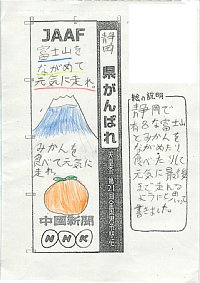 JAAF
富士山を
ながめて
元気に走れ。
みかんを
食べて元気に
走れ。
中國新聞
NHK
静岡
県がんばれ
絵の説明
静岡で
有名な富士山
とみかんを
ながめたり
食べたりして
元気に最後
まで走れる
ように思って
書きました。